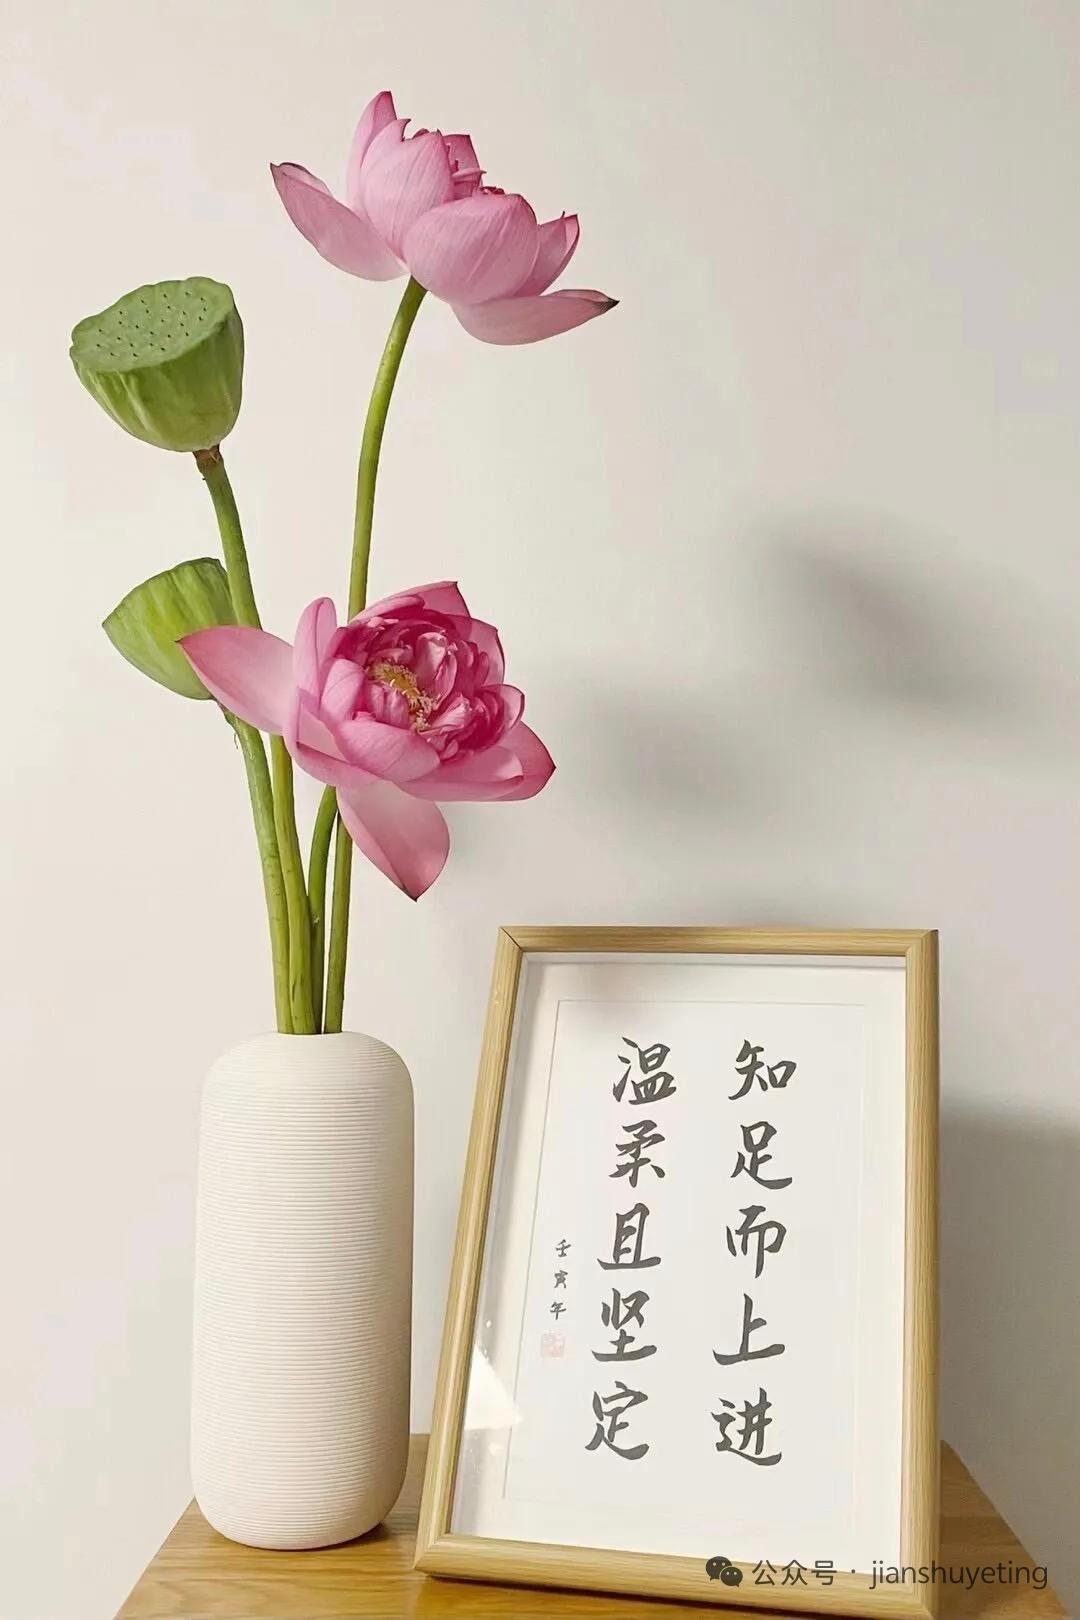 知足而上进
温柔且坚定
壬寅年
公众号 · jianshuyeting